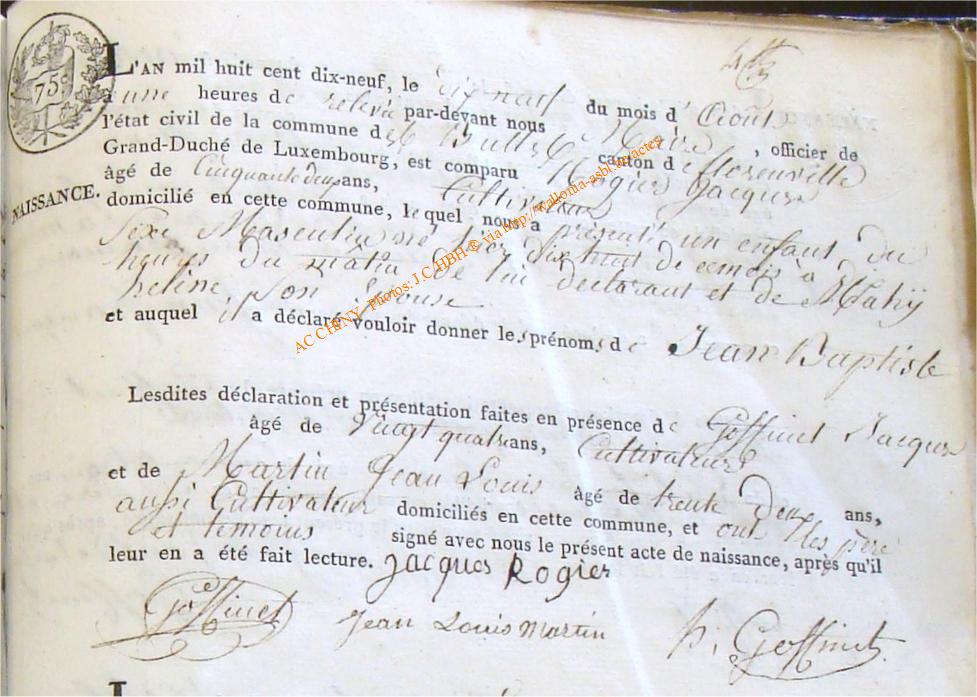 75c
L'AN mil huit cent dix-neuf, le dix neuf du mois d'Août
à une heures de relevée par-devant nous Maire, officier de
l'état civil de la commune de Bulles canton de florenville
Grand-Duché de Luxembourg, est comparu Rogier Jacques
âgé de Cinquante deux ans, Cultivateur
NAISSANCE.
domicilié en cette commune, lequel nous a présenté un enfant du
Sexe Masculin né hier dix huit de cemois à
heures du matin de lui déclarant et de Mahy
heline, son Epouse
et auquel il a déclaré vouloir donner les prénoms de Jean Baptiste
Lesdites déclaration et présentation faites en présence de Goffinet Jacques
âgé de Vingt quatre ans, Cultivateur
et de Martin Jean Louis âgé de trente Deux ans,
aussi Cultivateur domiciliés en cette commune, et ont les père
et temoins signé avec nous le présent acte de naissance, après qu'il
leur en a été fait lecture. Jacques Rogier
Goffinet Jean Louis Martin Goffinet
ACCHINY Photos: J.C.HBH ® via http://wallonia-asbl.be/actes